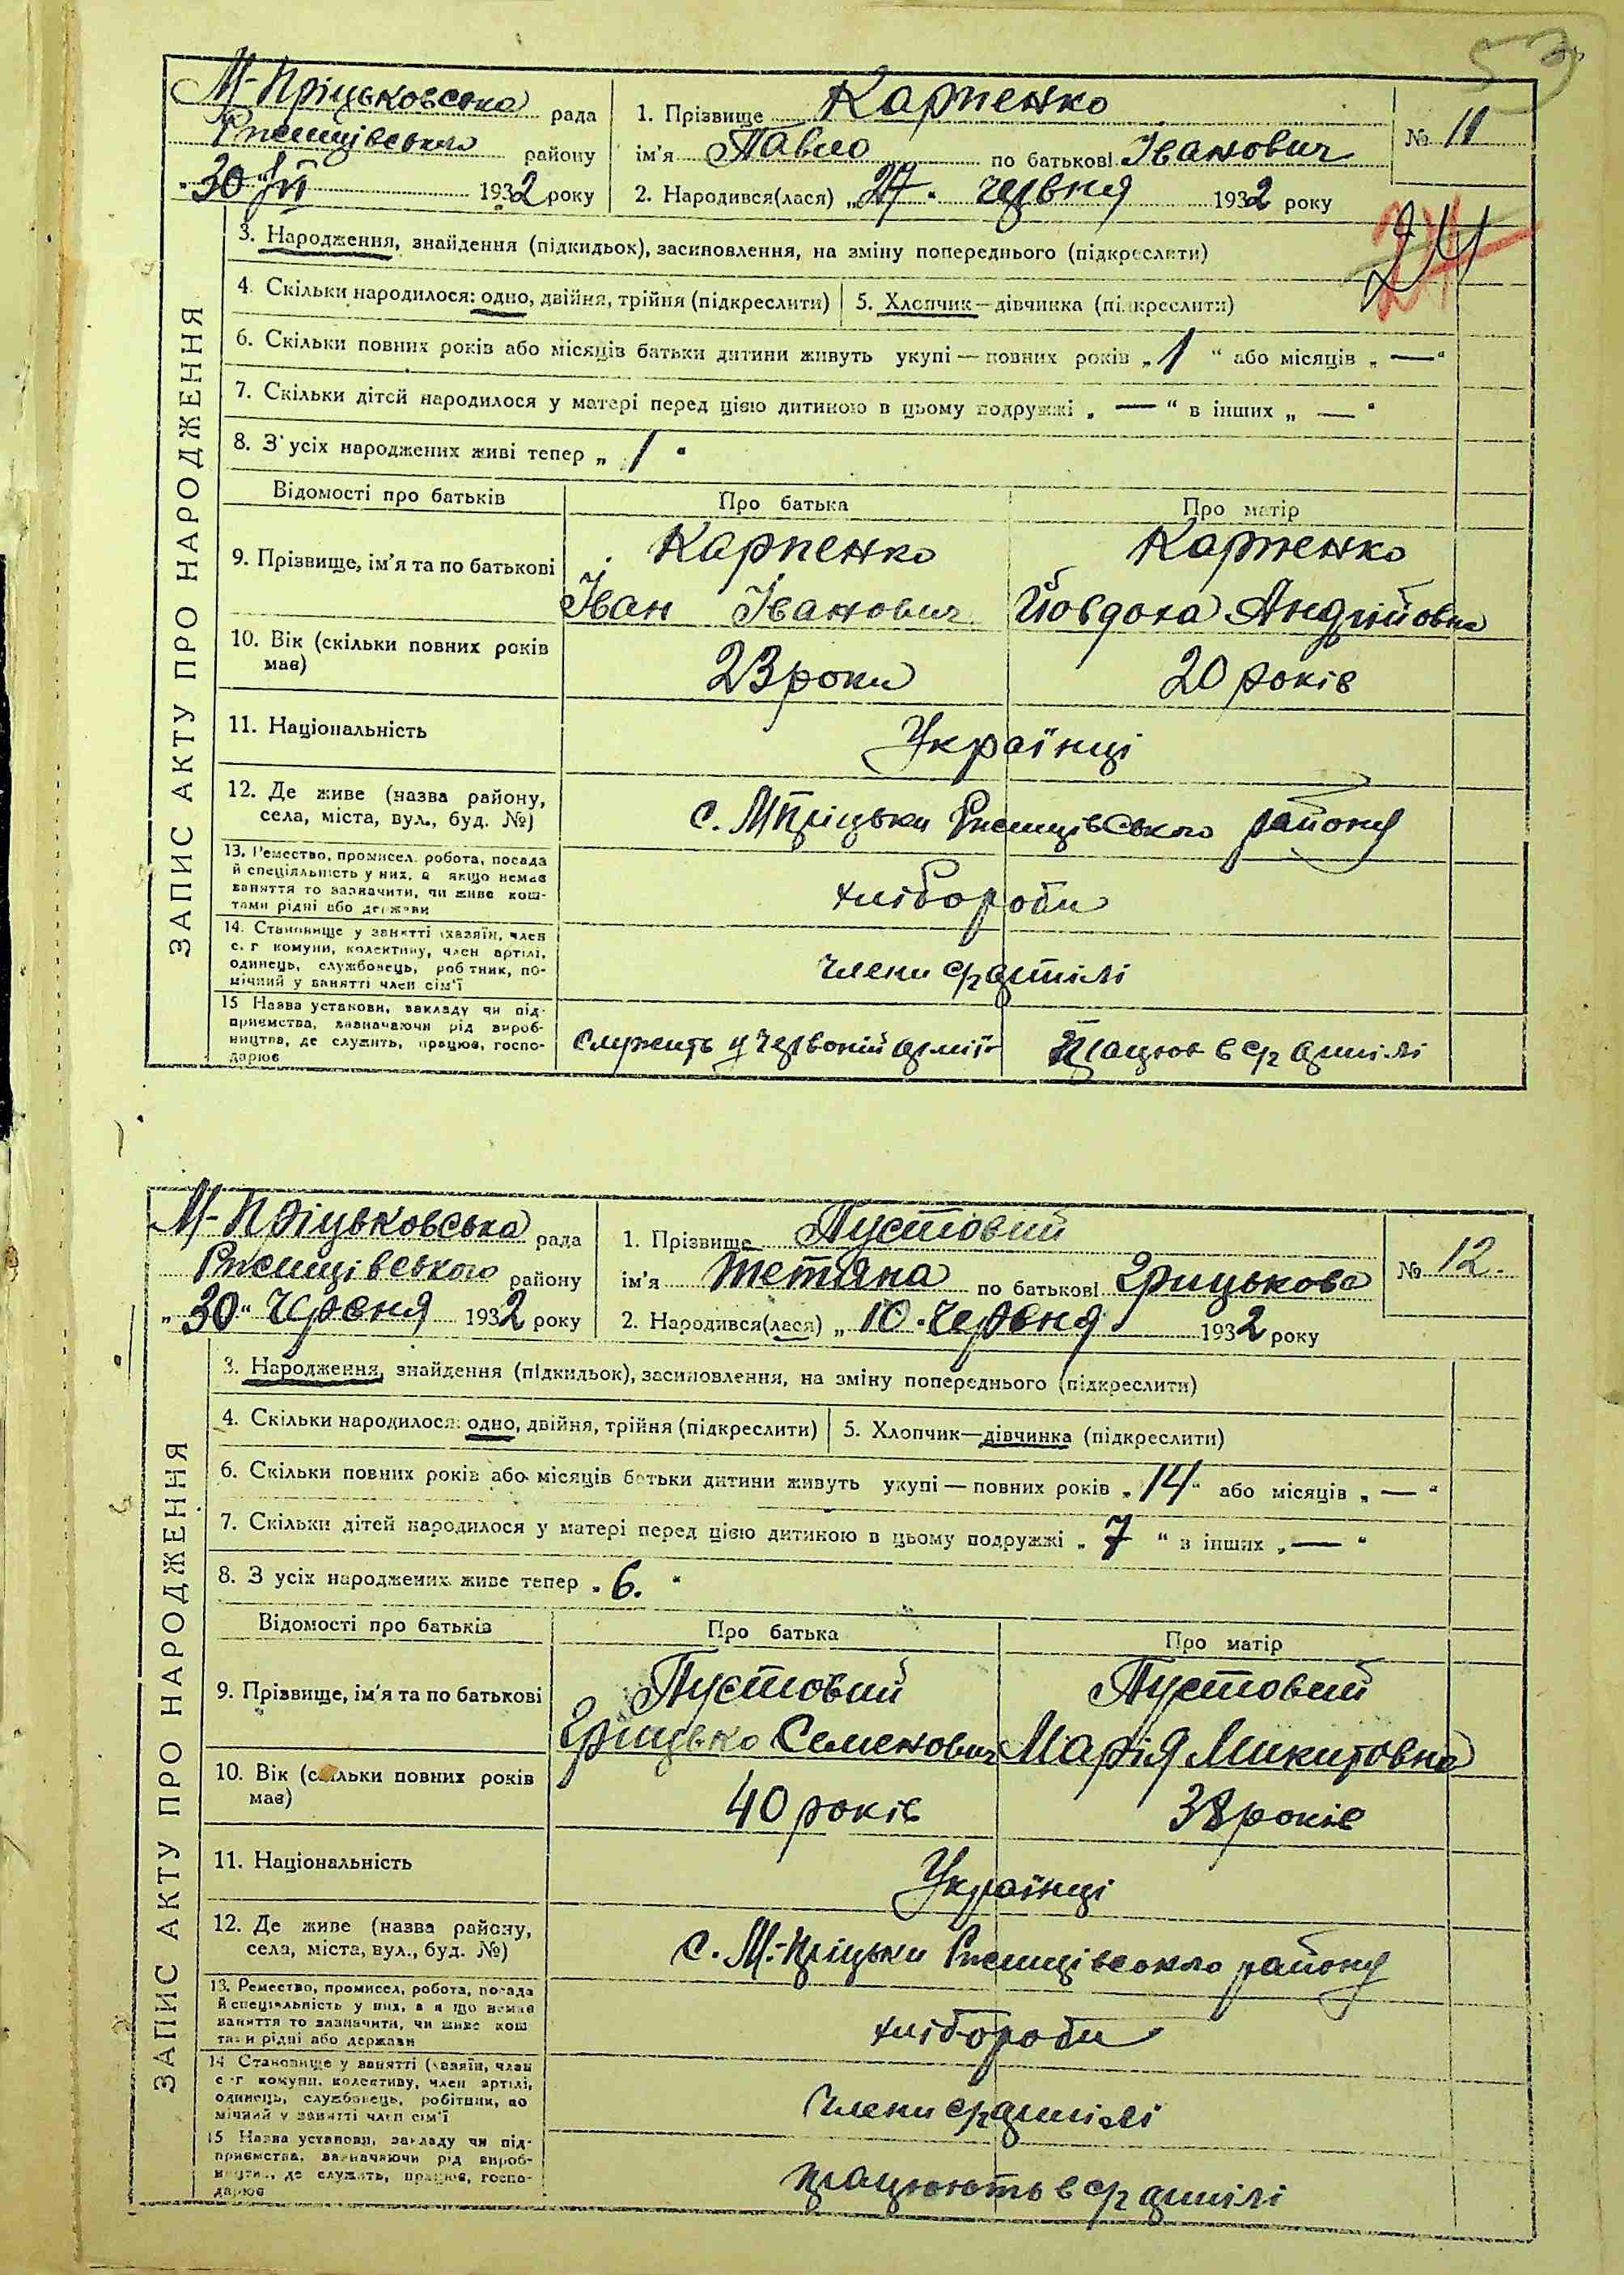 53
М-Пріцьковська рада
Ржищівського району
"30" VI 1932 року
1. Прізвище Карпенко
ім'я Павло по батькові Іванович
2. Народився(лася) „27" червня 1932 року
№ 11
24
3. Народження, знайдення (підкидьок), засиновлення, на зміну попереднього (підкреслити)
4. Скільки народилося: одно, двійня, трійня (підкреслити) 5. Хлопчик—дівчинка (підкреслити)
6. Скільки повних років або місяців батьки дитини живуть укупі — повних років „1" або місяців „—"
7. Скільки дітей народилося у матері перед цією дитиною в цьому подружжі „—" в інших „—"
8. З усіх народжених живі тепер „1"
ЗАПИС АКТУ ПРО НАРОДЖЕННЯ
Відомості про батьків Про батька Про матір
9. Прізвище, ім'я та по батькові
Карпенко Карпенко
Іван Іванович Йовдоха Андрійовна
10. Вік (скільки повних років
має)
23 роки 20 років
11. Національність
Українці
12. Де живе (назва району,
села, міста, вул., буд. №)
с. М Пріцьки Ржищівського району
13. Ремество, промисел, робота, посада
й спеціяльність у них, а якщо немає
заняття то зазначити, чи живе кош-
тами рідні або держави
хлібороби
14. Становище у занятті (хазяїн, член
с. г комуни, колективу, член артілі,
одинець, службовець, робітник, по-
мічний у занятті член сім'ї
члени с/г артілі
15 Назва установи, закладу чи під-
приємства, зазначаючи рід вироб-
ництва, де служить, працює, госпо-
дарює
Служить у Червоній армії Працює в с/г артілі
М-Пріцьковська рада
Ржищівського району
„30" Червня 1932 року
1. Прізвище Пустовий
ім'я Тетяна по батькові Грицькова
2. Народився(лася) „10" Червня 1932 року
№ 12.
3. Народження, знайдення (підкидьок), засиновлення, на зміну попереднього (підкреслити)
4. Скільки народилося: одно, двійня, трійня (підкреслити) 5. Хлопчик—дівчинка (підкреслити)
6. Скільки повних років або місяців батьки дитини живуть укупі — повних років „14" або місяців „—"
7. Скільки дітей народилося у матері перед цією дитиною в цьому подружжі „7" в інших „—"
8. З усіх народжених живе тепер „6."
ЗАПИС АКТУ ПРО НАРОДЖЕННЯ
Відомості про батьків Про батька Про матір
9. Прізвище, ім'я та по батькові
Пустовий Пустовий
Грицько Семенович Марія Микитовна
10. Вік (скільки повних років
має)
40 років 38 років
11. Національність
Українці
12. Де живе (назва району,
села, міста, вул., буд. №)
с. М.-Пріцьки Ржищівського району
13. Ремество, промисел, робота, посада
й спеціяльність у них, а якщо немає
заняття то зазначити, чи живе кош
тами рідні або держави
хлібороби
14 Становище у занятті (хазяїн, член
с-г комуни, колективу, член артілі,
одинець, службовець, робітник, по
мічний у занятті член сім'ї
Члени с/г артілі
15 Назва установи, закладу чи під-
приємства, зазначаючи рід вироб-
ництва, де служить, працює, госпо-
дарює
працюють в с/г артілі